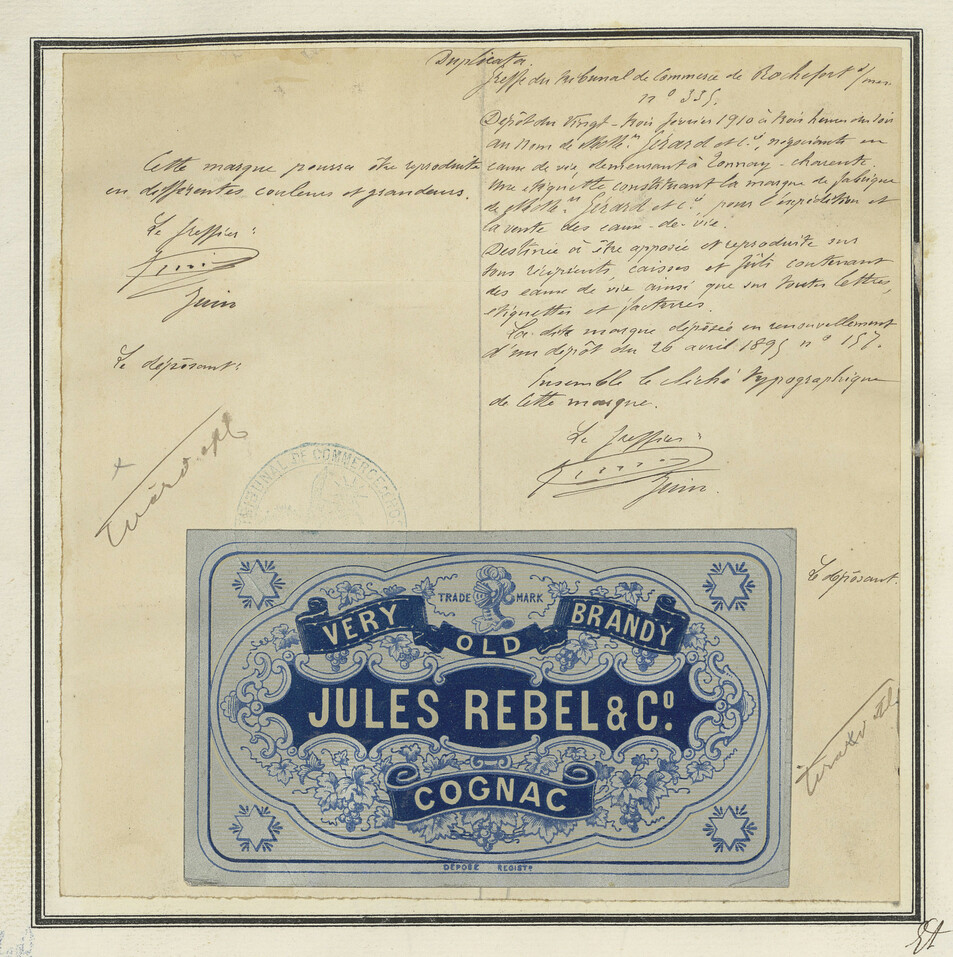 Duplicata
Greffe du Tribunal de Commerce de Rochefort s/mer
n° 335.
Dépôt du Vingt-trois février 1910 à trois heures du soir
au nom de MM. Gérard et Cie, négociants en
eaux de vie, demeurant à Tonnay-charente.
Une étiquette constituant la marque de fabrique
de MM. Gérard et Cie, pour l'expédition et
la vente des eaux-de-vie.
Destinée à être apposée et reproduite sur
tous récipients caisses et fûts contenant
des eaux de vie ainsi que sur toutes lettres,
étiquettes et factures.
La dite marque déposée en renouvellement
d'un dépôt du 26 avril 1895 n° 157.
Ensemble le cliché typographique
de cette marque.
Le greffier:
Juin
Le déposant:
Cette marque pourra être reproduite
en différentes couleurs et grandeurs.
Le greffier:
Juin
Le déposant:
TRIBUNAL DE COMMERCE
TRADE MARK
VERY OLD BRANDY
JULES REBEL & Co.
COGNAC
DÉPOSÉ REGISTD